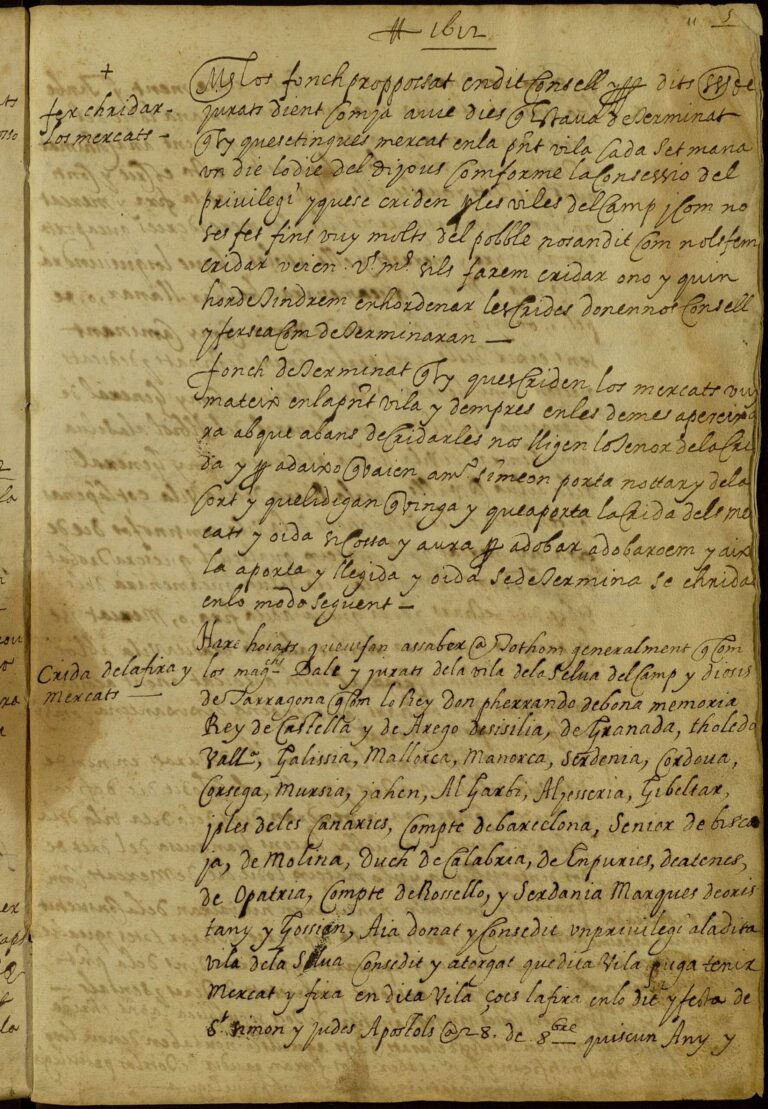 1612
5
+
fer chridar
los mercats
Mes los fonch proppossat en dit Consell dits de
jurats dient Com ja avie dies estava determinat
y que se tingues mercat en la pnt vila cada setmana
un die lo die del dijous comforme la Consessio del
privilegi y que se criden les viles del Camp y Com no
ses fet fins vuy molts del pobble nos an dit Com nols fem
cridar veien si ls farem cridar o no y quin
horde tindrem en hordenar les Crides donen nos Consell
y fersea Com determinaran
fonch determinat y que Criden los mercats vuy
mateix en la pnt vila y dempres en les demes
ra ab que abans de Cridarles nos lligen lo tenor de la Cri
da y adaixo simeon porta nottary de la
Cort y que li digan vinga y que aporta la Crida dels me
cats y oida si Cossa y aura adobar adobaroem y aixi
la aporta y llegida y oida se determina se chridas
en lo modo seguent
Hare hoiats queus fan assaber a Tothom generalment Com
Crida de la fira y
mercats
los magchs Batle y jurats de la vila de la Selva del Camp y diosis
de Tarragona Com lo Rey Don pherrando de bona memoria
Rey de Castella y de Arego de sisilia, de Granada, tholedo
Vallª, Galissia, Mallorca, Manorca, Serdenia, Cordova,
Corsega, Mursia, jahen, Al Garbi, Aljesseria, Gibeltar,
isles de les Canaries, Compte de barcelona, Senior de bisca
ja, de Molina, Duch de Calabria, de Enpuries, de atenes,
de Opatria, Compte de Rossello, y Serdania Marques de oris
tany y Gossian, Aia donat y Consedit un privilegi a la dita
vila de la Selva Consedit y atorgat que dita Vila puga tenir
Mercat y fira en dita Vila ço es la fira en lo die y festa de
St simon y judes Apostols a 28. de 8bre quiscun Any y